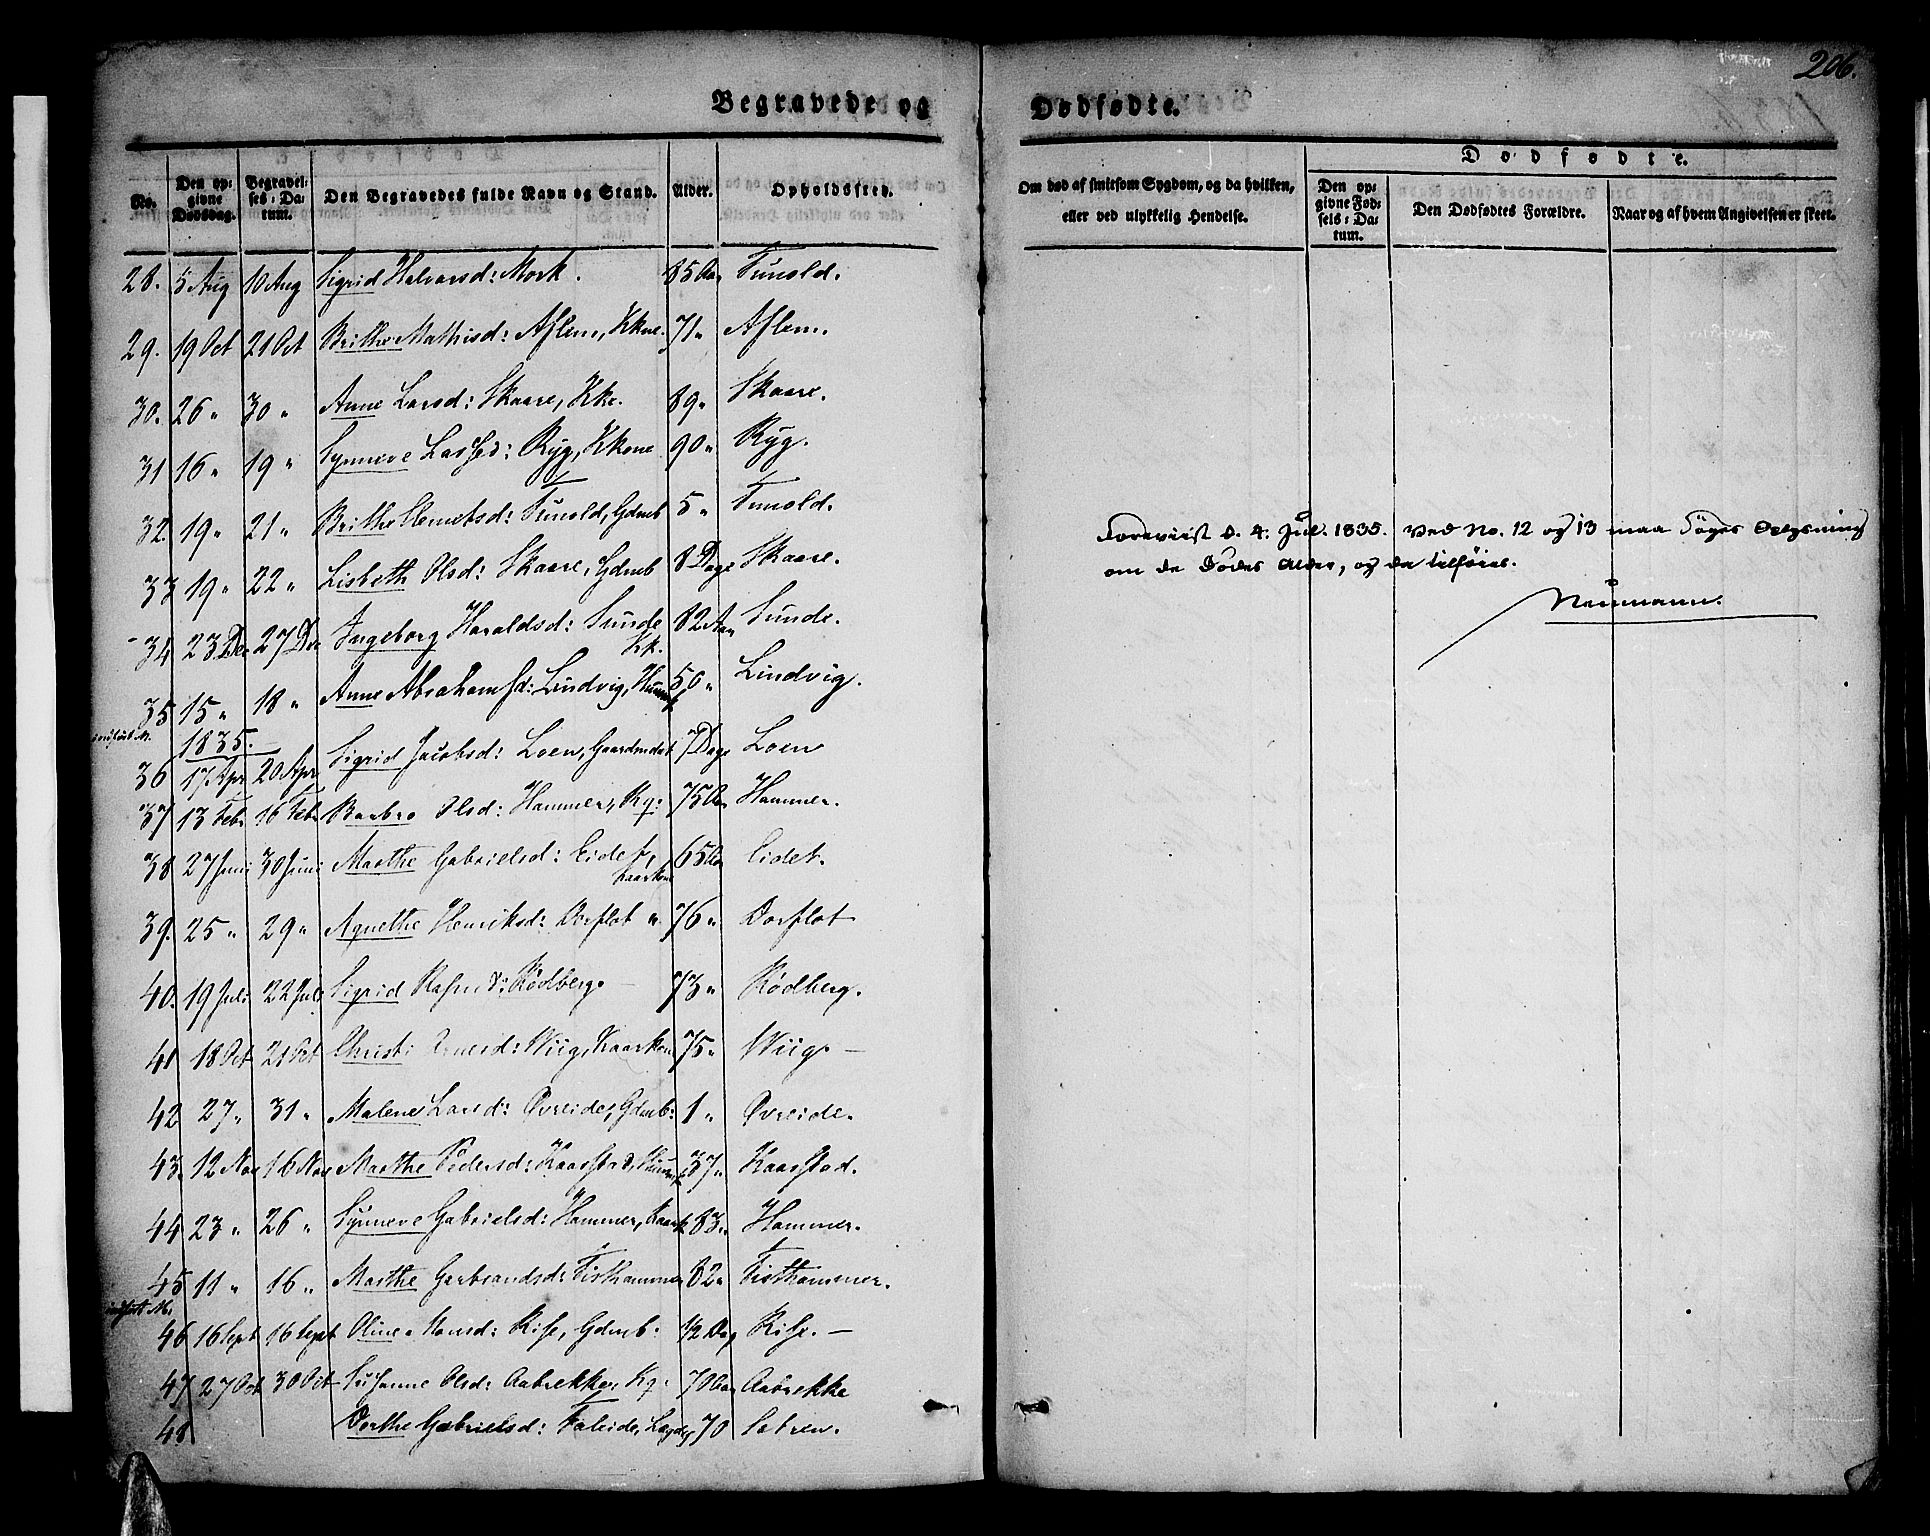 206.
Begravede og Dødfødte.
No.
Den opgivne Dødsdag.
Begravelses-Datum.
Den Begravedes fulde Navn og Stand.
Alder.
Opholdssted.
Om død af smitsom Sygdom, og da hvilken, eller ved ulykkelig Hendelse.
Dødfødte.
Den opgivne Fødsels-Datum.
Den Dødfødtes Forældre.
Naar og af hvem Angivelsen er skeet.
28. 5 Aug 10 Aug Sigrid Halvorsd: Mork. 85 Aar Tunold.
29. 19 Oct 21 Oct Brithe Mathisd: Aflem, Kkne. 71 " Aflem.
30. 26 " 30 " Anne Larsd: Skaare, Kke. 89 " Skaare.
31 16 " 19 " Synneve Lassed: Ryg, Kkone 90 " Ryg.
32. 19 " 21 " Brithe Clemetsd: Tunold, Gdmb 5 " Tunold.
33 19 " 22 " Lisbeth Olsd: Skaare, Gdmb 8 Dage Skaare.
34 23 Dec 27 Dec Ingeborg Haraldsd: Sunde Kk. 82 Aar Sunde.
35 15 " 18 " Anne Abrahamsd: Lindvig, 50 " Lindvig.
1835.
36 17 Apr 20 Apr Sigrid Jacobsd: Loen, 7 Dage Loen
37 13 Febr 16 Febr Barbro Olsd: Hammer, Kg: 75 Aar Hammer.
38 27 Juni 30 Juni Marthe Gabrielsd: Eidet, Kaarkone 65 Aar Eidet.
39. 25 " 29 " Agnethe Henriksd: Dorflot " 76 " Dorflot
40. 19 Juli 22 Juli Sigrid Rasm d: Rødberg. — 73 " Rødberg.
41 18 Oct 21 Oct Christi d: Wiig, Kaarkon 75 " Wiig. —
42 27 " 31 " Malene Larsd: Øvreide, Gdmb: 1 " Øvreide.
43. 12 Nov 16 Nov Marthe Pedersd: Kaarstad, 37 " Kaarstad.
44 23 " 26 " Synneve Gabrielsd: Hammer, Kaark 83 " Hammer.
45 11 " 16 " Marthe Gerbrandsd: Tisthammer 82 " Tisthammer.
46 16 Sept 16 Sept Oline Monsd: Rise, Gdmb: 1/2 Dag Rise. —
47 27 Oct 30 Oct Susanne Olsd: Aabrekke, Kg: 70 Aar Aabrekke
48 Dorthe Gabrielsd: Faleide, 70 Sætren.
Foreviist d. 4. Jul. 1835. Ved No. 12 og 13 maa Søges Oplysning
om de Dødes Alder, og da tilføies.
Neumann.